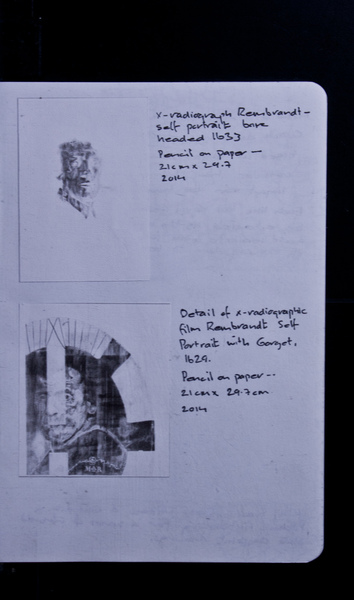 x-radiograph Rembrandt-
self portrait bare
headed 1633
Pencil on paper -
21cm x 29.7
2014
Detail of x-radiographic
film Rembrandt Self
Portrait with Gorget,
1629.
Pencil on paper --
21cm x 29.7cm
2014